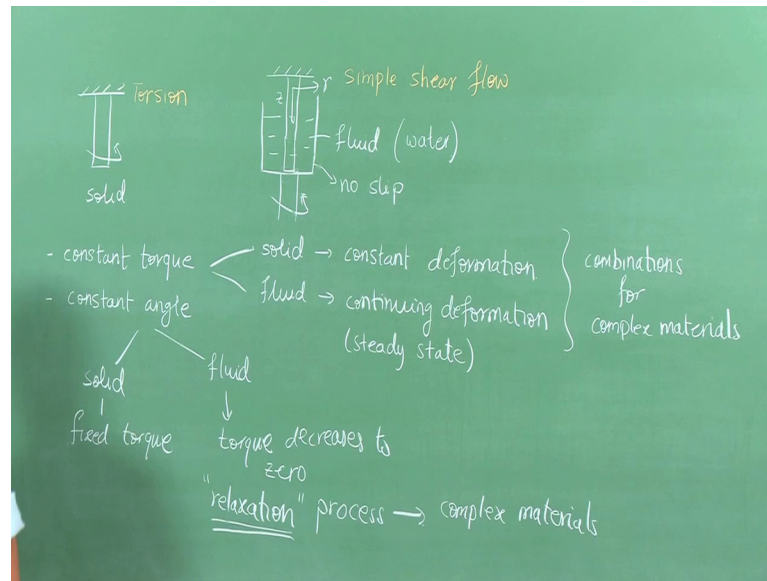 Torsion
solid
simple shear flow
r
z
fluid (water)
no slip
- constant torque
solid → constant deformation
fluid → continuing deformation
(steady state)
combinations
for
complex materials
- constant angle
solid
fixed torque
fluid
torque decreases to
zero
"relaxation" process → complex materials